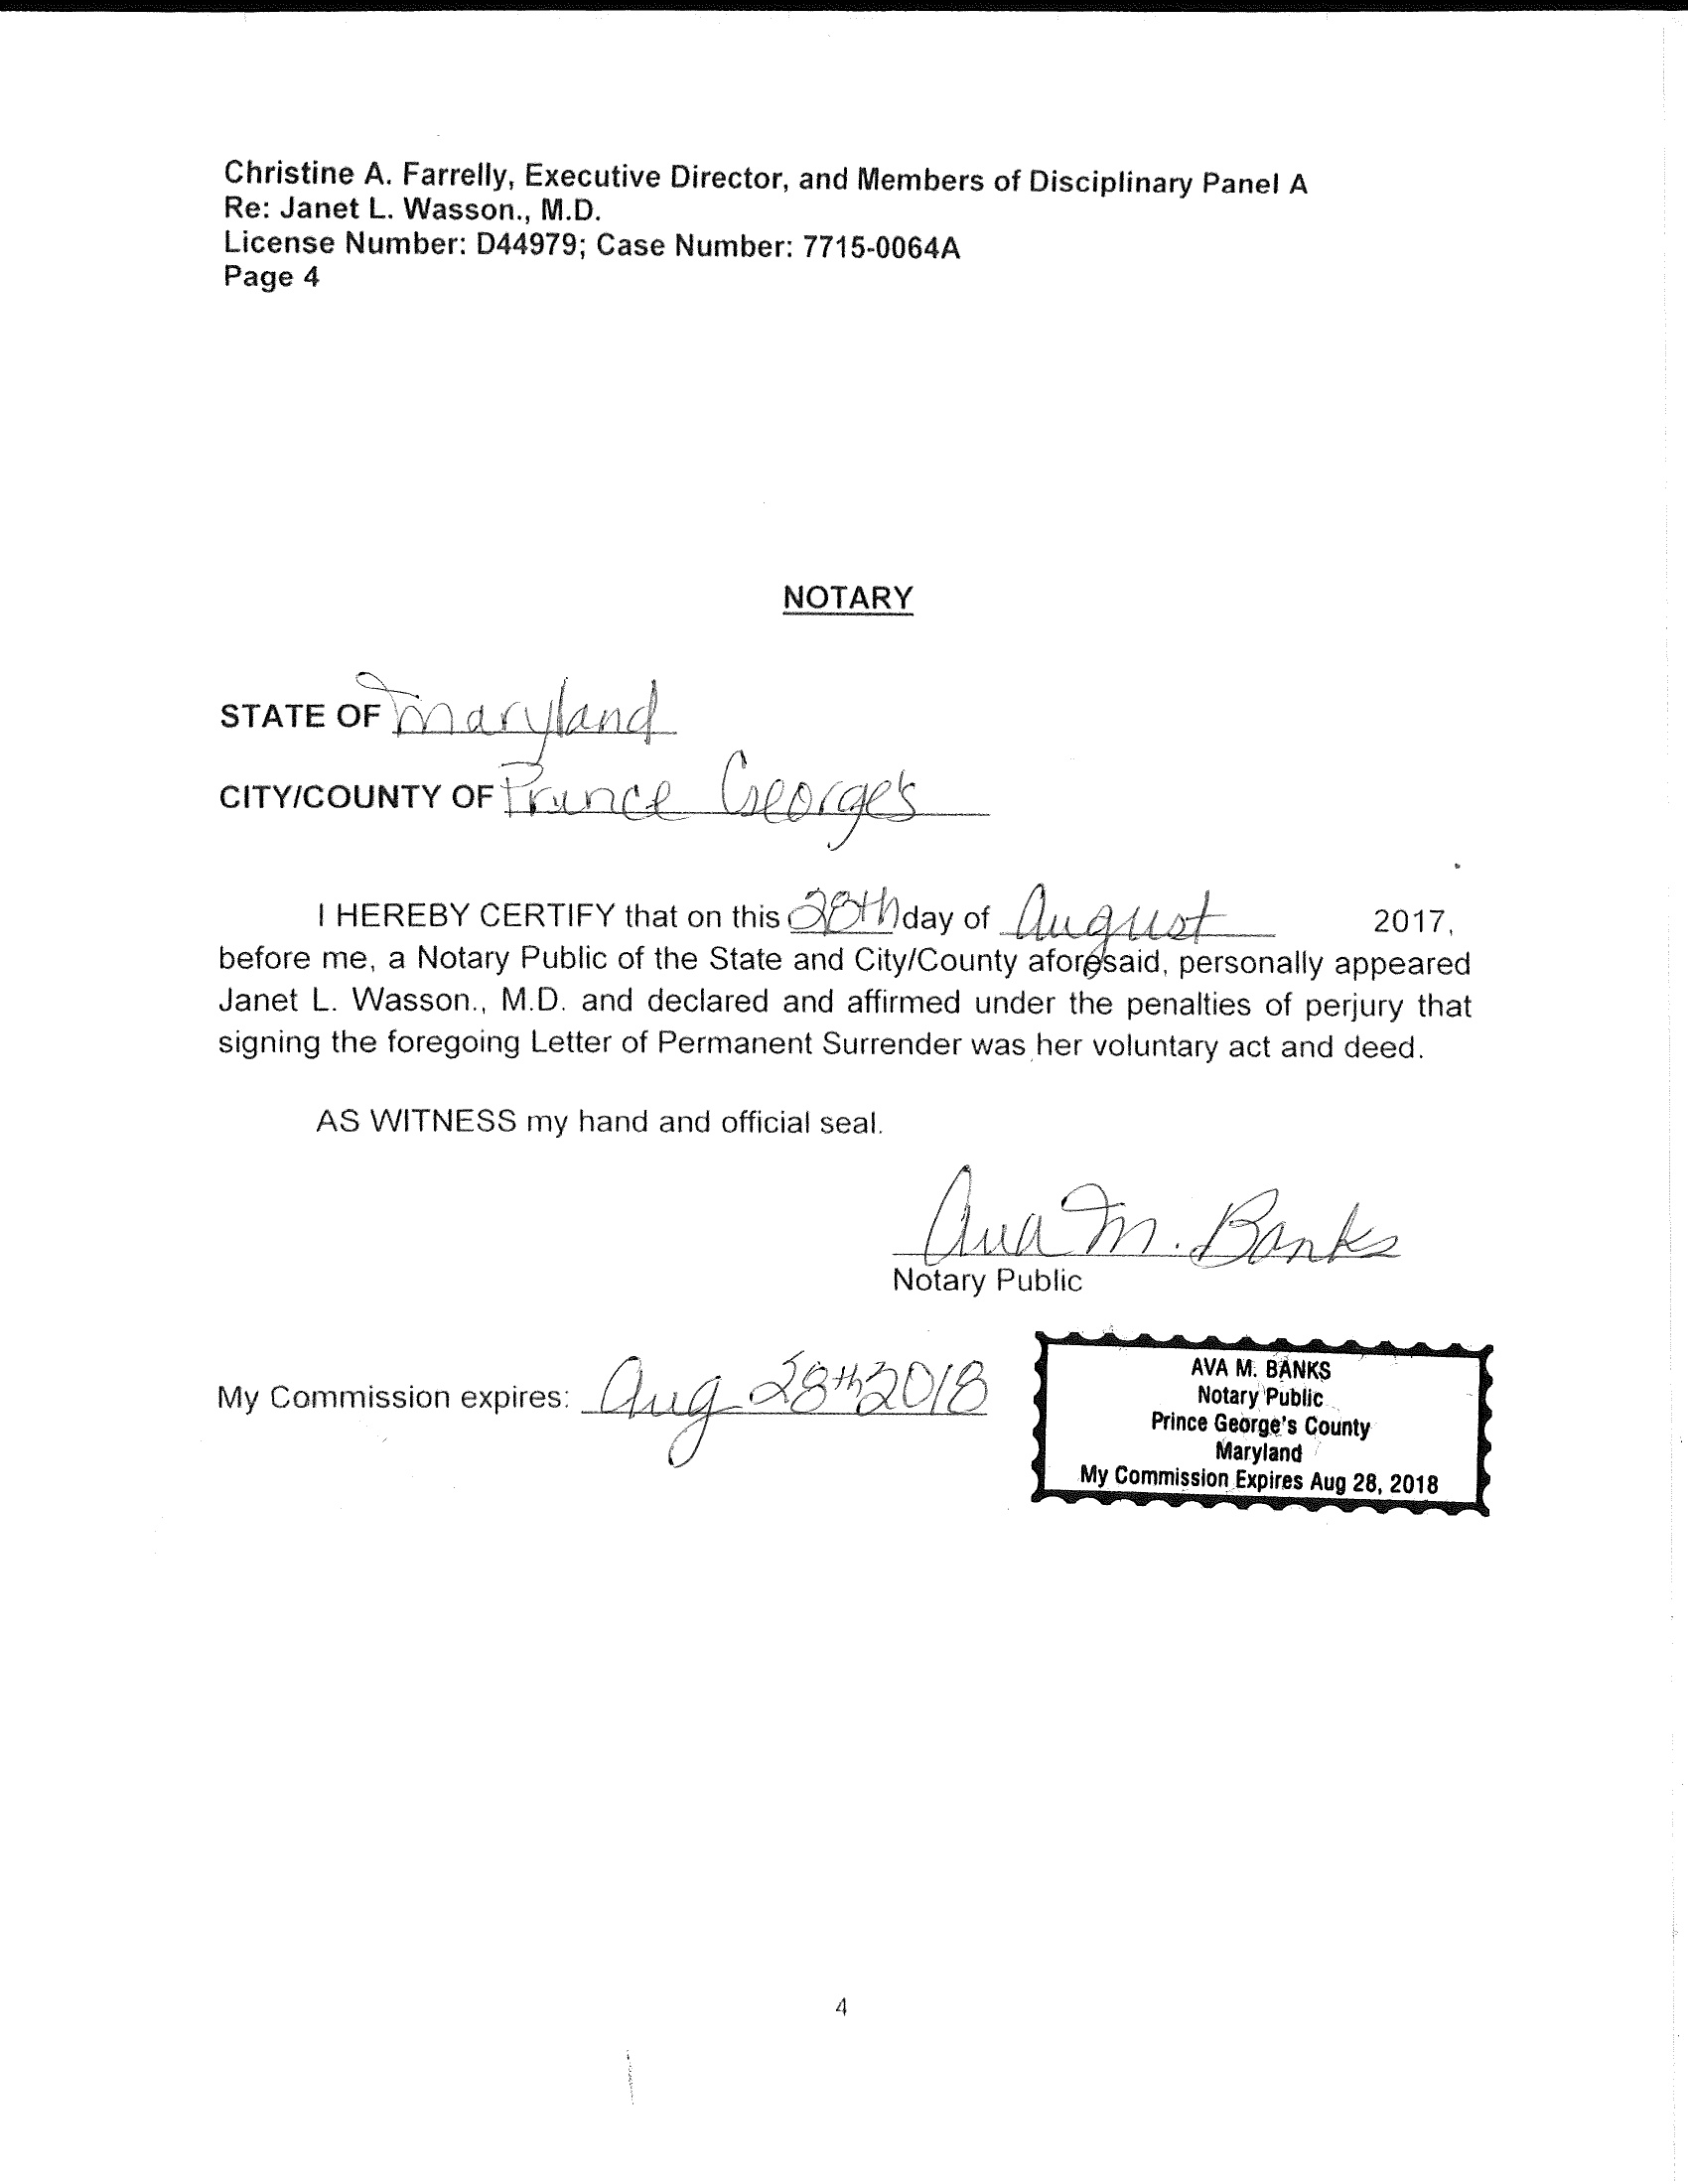 Christine A. Farrelly, Executive Director, and Members of Disciplinary Panel A
Re: Janet L. Wasson., M.D.
License Number: D44979; Case Number: 7715-0064A
Page 4
NOTARY
STATE OF Maryland
CITY/COUNTY OF Prince George's
I HEREBY CERTIFY that on this 28th day of August 2017,
before me, a Notary Public of the State and City/County aforesaid, personally appeared
Janet L. Wasson., M.D. and declared and affirmed under the penalties of perjury that
signing the foregoing Letter of Permanent Surrender was her voluntary act and deed.
AS WITNESS my hand and official seal.
Ava M. Banks
Notary Public
My Commission expires: Aug 28th 2018
AVA M. BANKS
Notary Public
Prince George's County
Maryland
My Commission Expires Aug 28, 2018
4